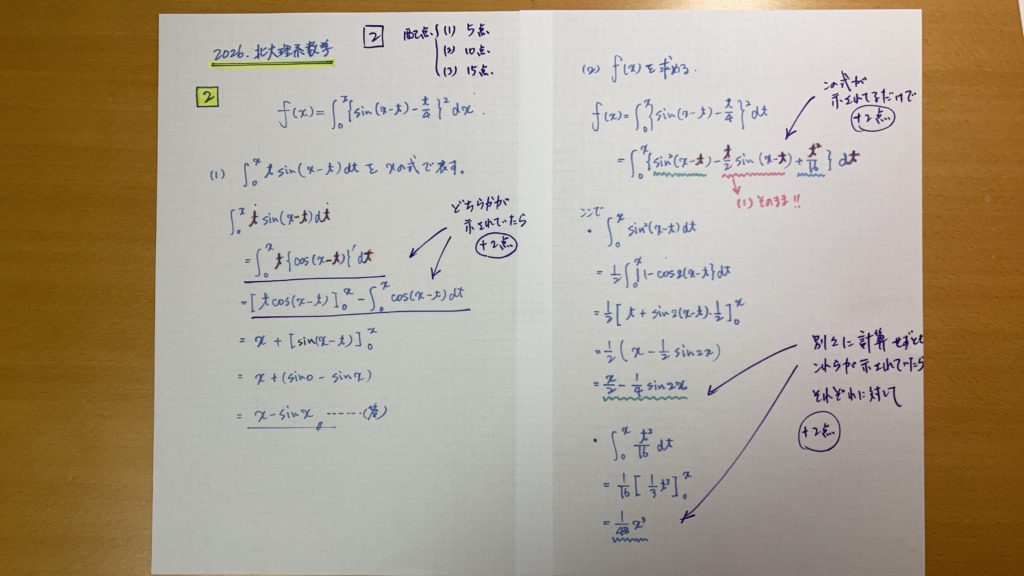 2026.北大理系数学
2 配点 (1) 5点
(2) 10点
(3) 15点
2
f(x)=∫₀ˣ{sin(x-t)-t/4}²dx.
(1) ∫₀ˣ t sin(x-t)dtをxの式で表す。
∫₀ˣ t sin(x-t)dt
=∫₀ˣ t{cos(x-t)}'dt
=[t cos(x-t)]₀ˣ-∫₀ˣ cos(x-t)dt
= x+[sin(x-t)]₀ˣ
= x+(sin0-sinx)
= x-sinx ……(答)
どちらかが
示されていたら
+2点
(2) f(x)を求める.
f(x)=∫₀ˣ{sin(x-t)-t/4}²dt
=∫₀ˣ{sin²(x-t)-t/2 sin(x-t)+t²/16}dt
(1)そのまま!!
この式が
示されてるだけで
+2点
ここで
・∫₀ˣ sin²(x-t)dt
=1/2∫₀ˣ{1-cos2(x-t)}dt
=1/2[t+sin2(x-t)・1/2]₀ˣ
=1/2(x-1/2 sin2x)
=x/2-1/4 sin2x
別々に計算せずとも
これらが示されていたら
それぞれに対して
+2点
・∫₀ˣ t²/16 dt
=1/16[1/3 t³]₀ˣ
=1/48 x³